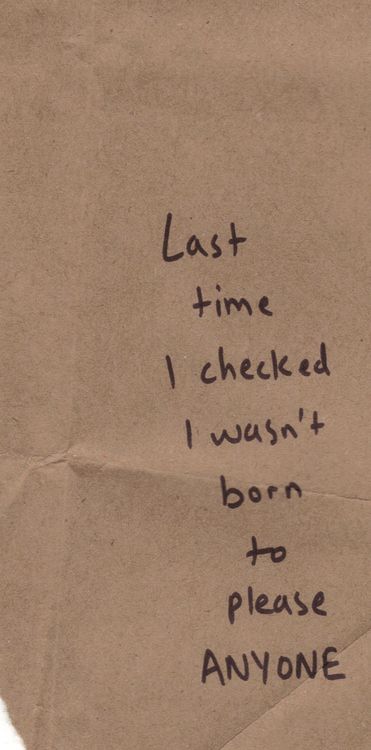 Last
time
I checked
I wasn't
born
to
please
ANYONE